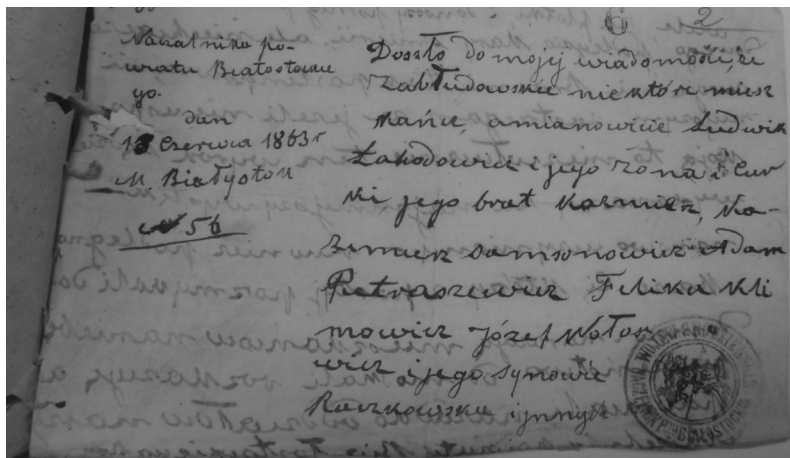 2
Naczalnika po-
wiatu Białostockie
go.
dan
13 Czerwca 1863 r
M. Białystok
N 56
Doszło do mojej wiadomości, że
Zabłudowskie niektóre miesz
kańcy, a mianowicie Ludwik
Łakodowicz i jego żona i cur
ki jego brat Kazmierz, Ka-
zimierz Samsonowicz Adam
Pietraszewicz Felika Kli
mowicz Józef Wołos
wicz i jego synowie
Raczkowski i jnnych